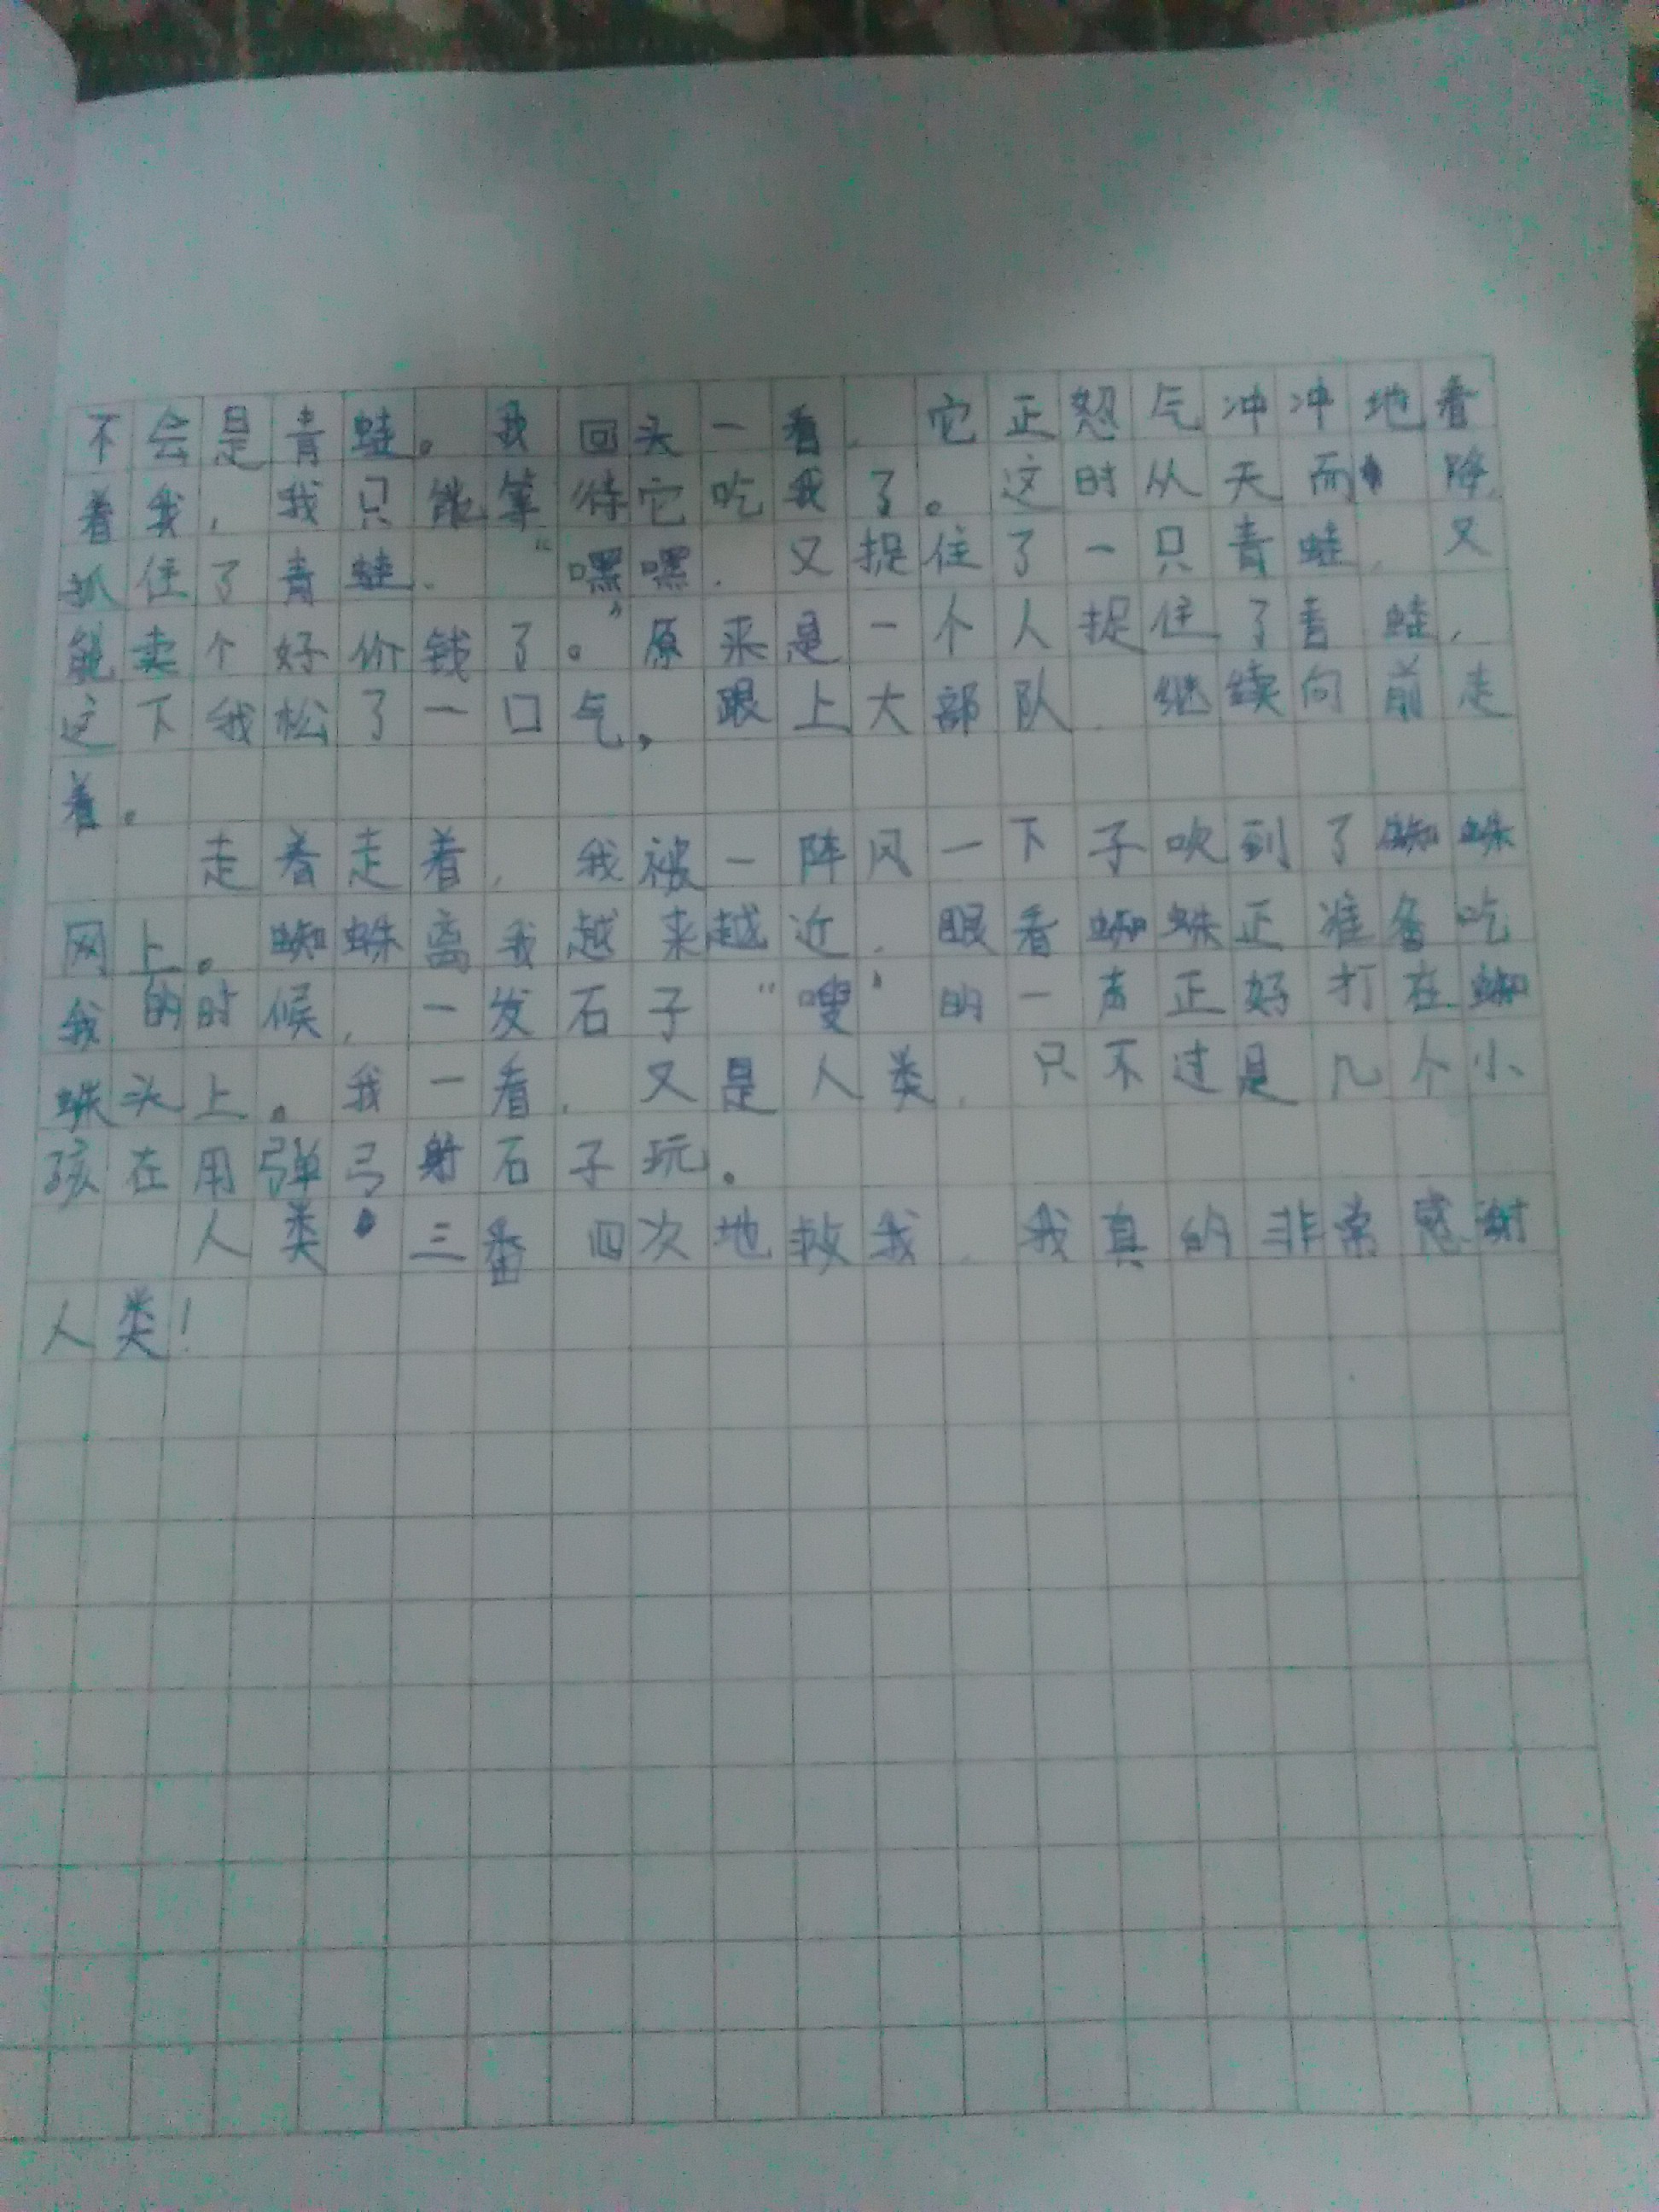 不会是青蛙。我回头一看，它正怒气冲冲地看
着我，我只能等待它吃我了。这时从天而降，
抓住了青蛙，“嘿嘿，又捉住了一只青蛙，又
能卖个好价钱了。”原来是一个人捉住了青蛙，
这下我松了一口气，跟上大部队，继续向前走
着。
走着走着，我被一阵风一下子吹到了蜘蛛
网上。蜘蛛离我越来越近，眼看蜘蛛正准备吃
我的时候，一发石子“嗖”的一声正好打在蜘
蛛头上。我一看，又是人类，只不过是几个小
孩在用弹弓射石子玩。
人类三番四次地救我，我真的非常感谢
人类！